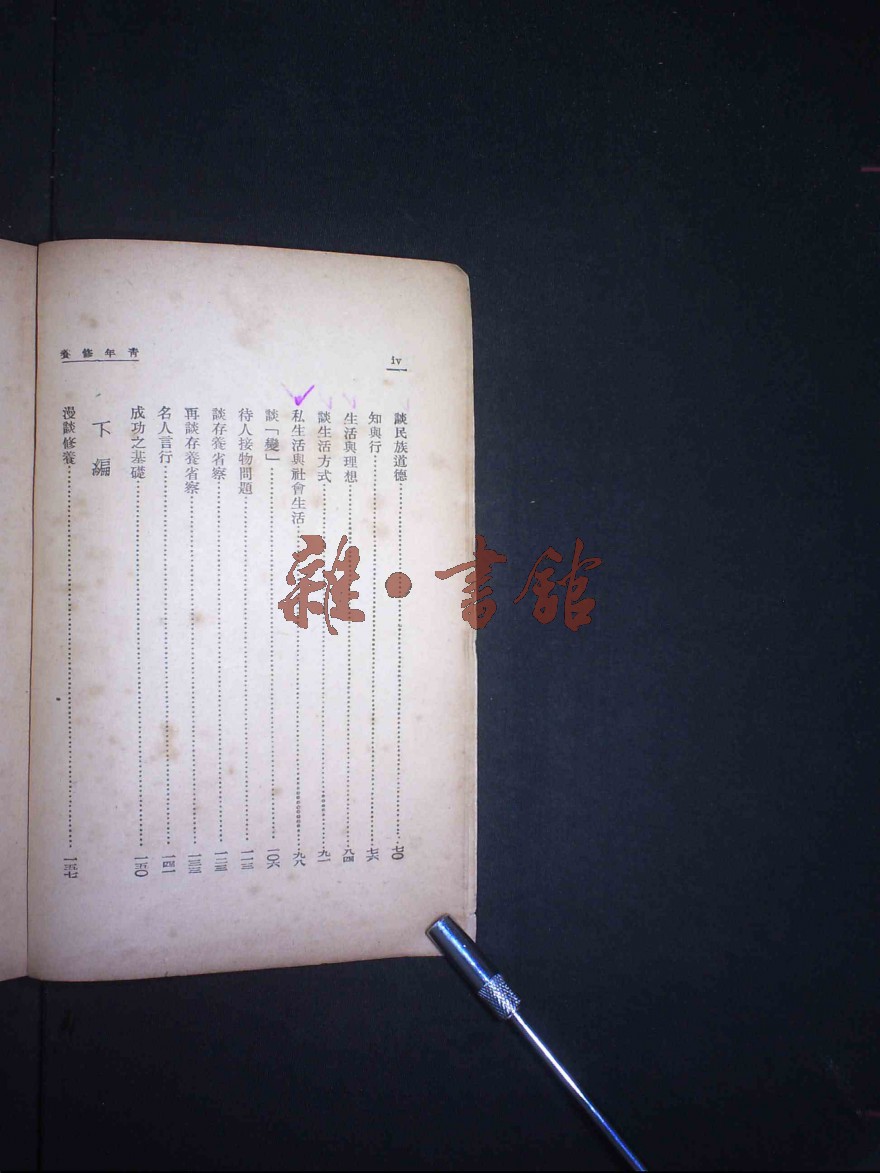 iv
青年修養
談民族道德……七〇
知與行……七六
生活與理想……八四
談生活方式……九一
私生活與社會生活……九八
談「變」……一〇六
待人接物問題……一一三
談存養省察……一二三
再談存養省察……一三三
名人言行……一四一
成功之基礎……一五〇
下編
漫談修養……一五七
雜·書館